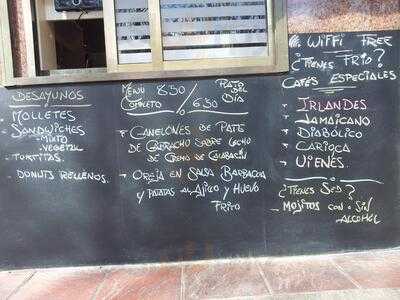 DESAYUNOS
MOLLETES
SANDWICHES
- MIXTO
- VEGETAL
- TORTITAS.
- DONUTS RELLENOS.
MENÚ 8'50 / PLATO
COMPLETO / 6'30 DEL
DÍA
* CANELONES DE PATO
DE CARRACHO SOBRE LECHO
DE CREMA DE CALABACIN
* OREJA EN SALSA BARBACOA
Y PATATAS AL AJILLO Y HUEVO
FRITO
* WIFFI FREE
¿TIENES FRIO?
CAFÉS ESPECIALES
- IRLANDES
- JAMAICANO
- DIABÓLICO
- CARIOCA
- VIENÉS.
¿TIENES SED?
- MOJITOS CON O SIN
ALCOHOL